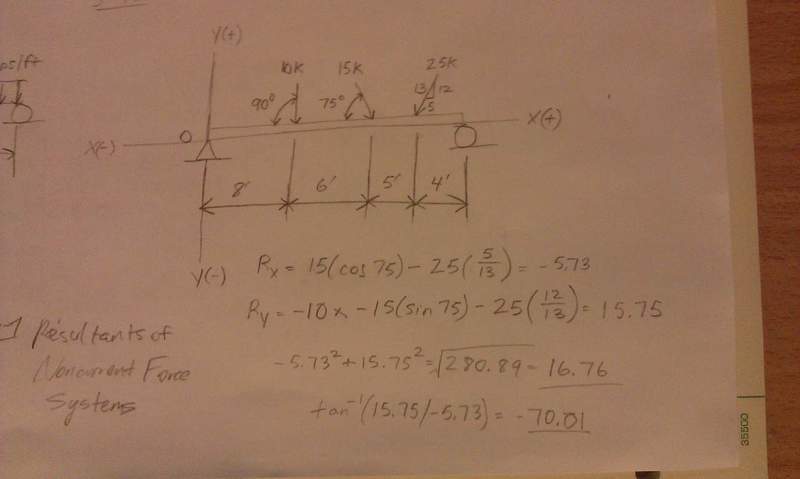 os/ft
Y(+)
10K 15K 25K
90° 75° 13 12
5
X(-) O X(+)
8' 6' 5' 4'
Y(-)
Rx = 15(cos 75) - 25(5/13) = -5.73
Ry = -10k - 15(sin 75) - 25(12/13) = 15.75
Resultants of
Noncurrent Force
Systems
-5.73² + 15.75² = √280.89 = 16.76
tan⁻¹(15.75/-5.73) = -70.01
35500